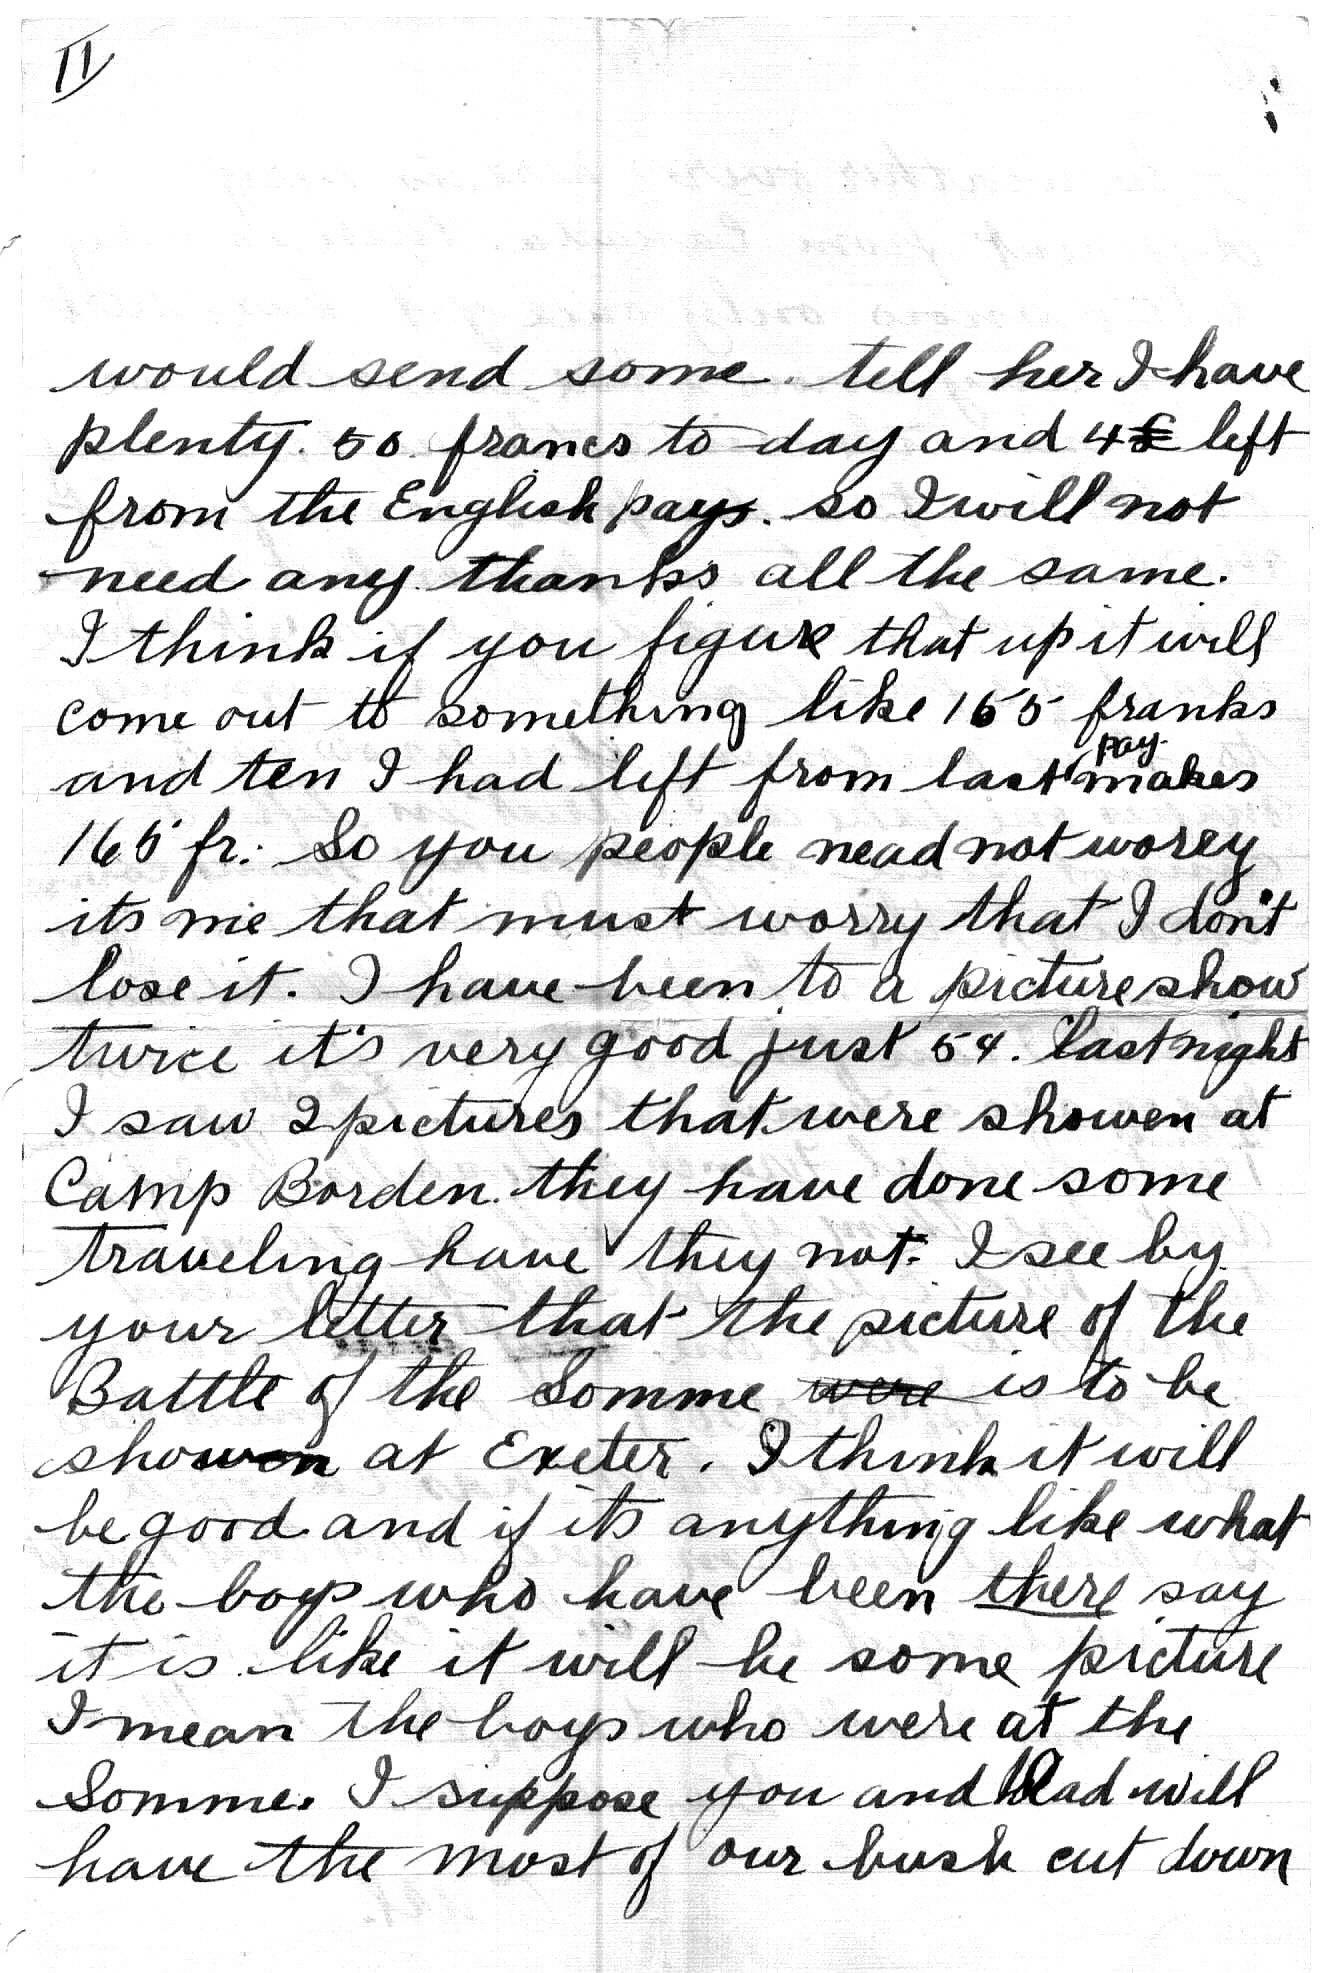 II
would send some. tell her I have
plenty. 50 francs to day and 4£ left
from the English pays. so I will not
need any thanks all the same.
I think if you figure that up it will
come out to something like 155 franks
and ten I had left from last pay makes
165 fr. So you people nead not worey
its me that must worry that I don't
lose it. I have been to a picture show
twice it's very good just 5¢. last night
I saw 2 pictures that were showen at
Camp Borden. they have done some
traveling have they not. I see by
your letter that the picture of the
Battle of the Somme were is to be
showen at Exeter. I think it will
be good and if its anything like what
the boys who have been there say
it is like it will be some picture
I mean the boys who were at the
Somme. I suppose you and Dad will
have the most of our bush cut down